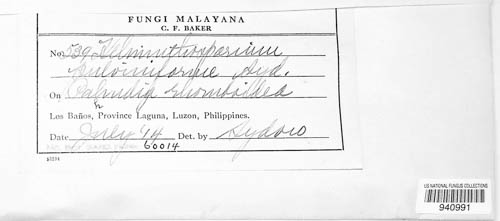 FUNGI MALAYANA
C. F. BAKER
No. 539 Helminthosporium
Syd.
On rhomboidea
Los Baños, Province Laguna, Luzon, Philippines.
Date July '14 Det. by Sydow
60014
US NATIONAL FUNGUS COLLECTIONS
940991